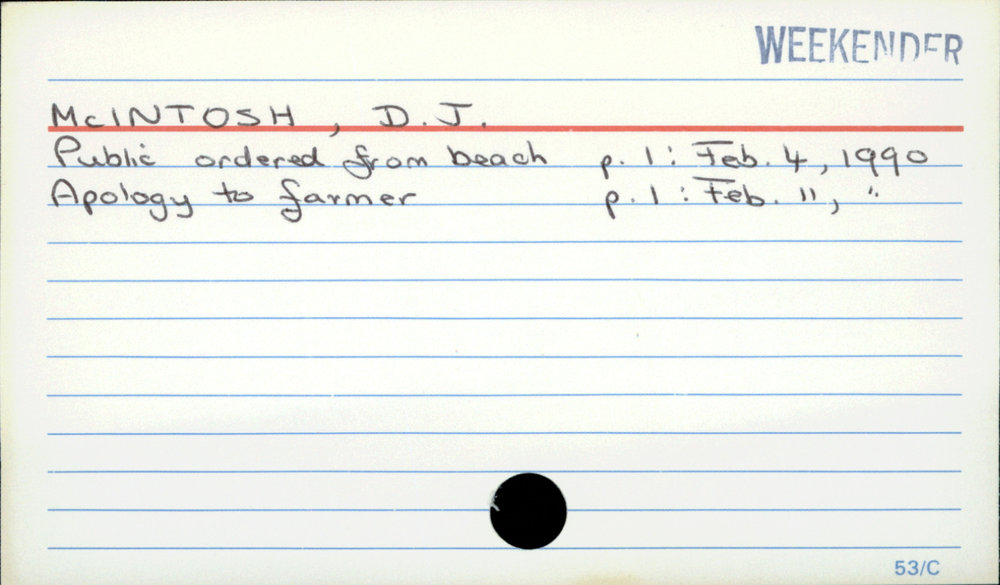 WEEKENDER
McINTOSH, D.J.
Public ordered from beach p. 1 : Feb. 4, 1990
Apology to farmer p. 1 : Feb. 11, "
53/C